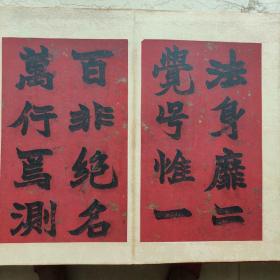 法身靡二
覺号惟一
百非绝名
萬行焉測